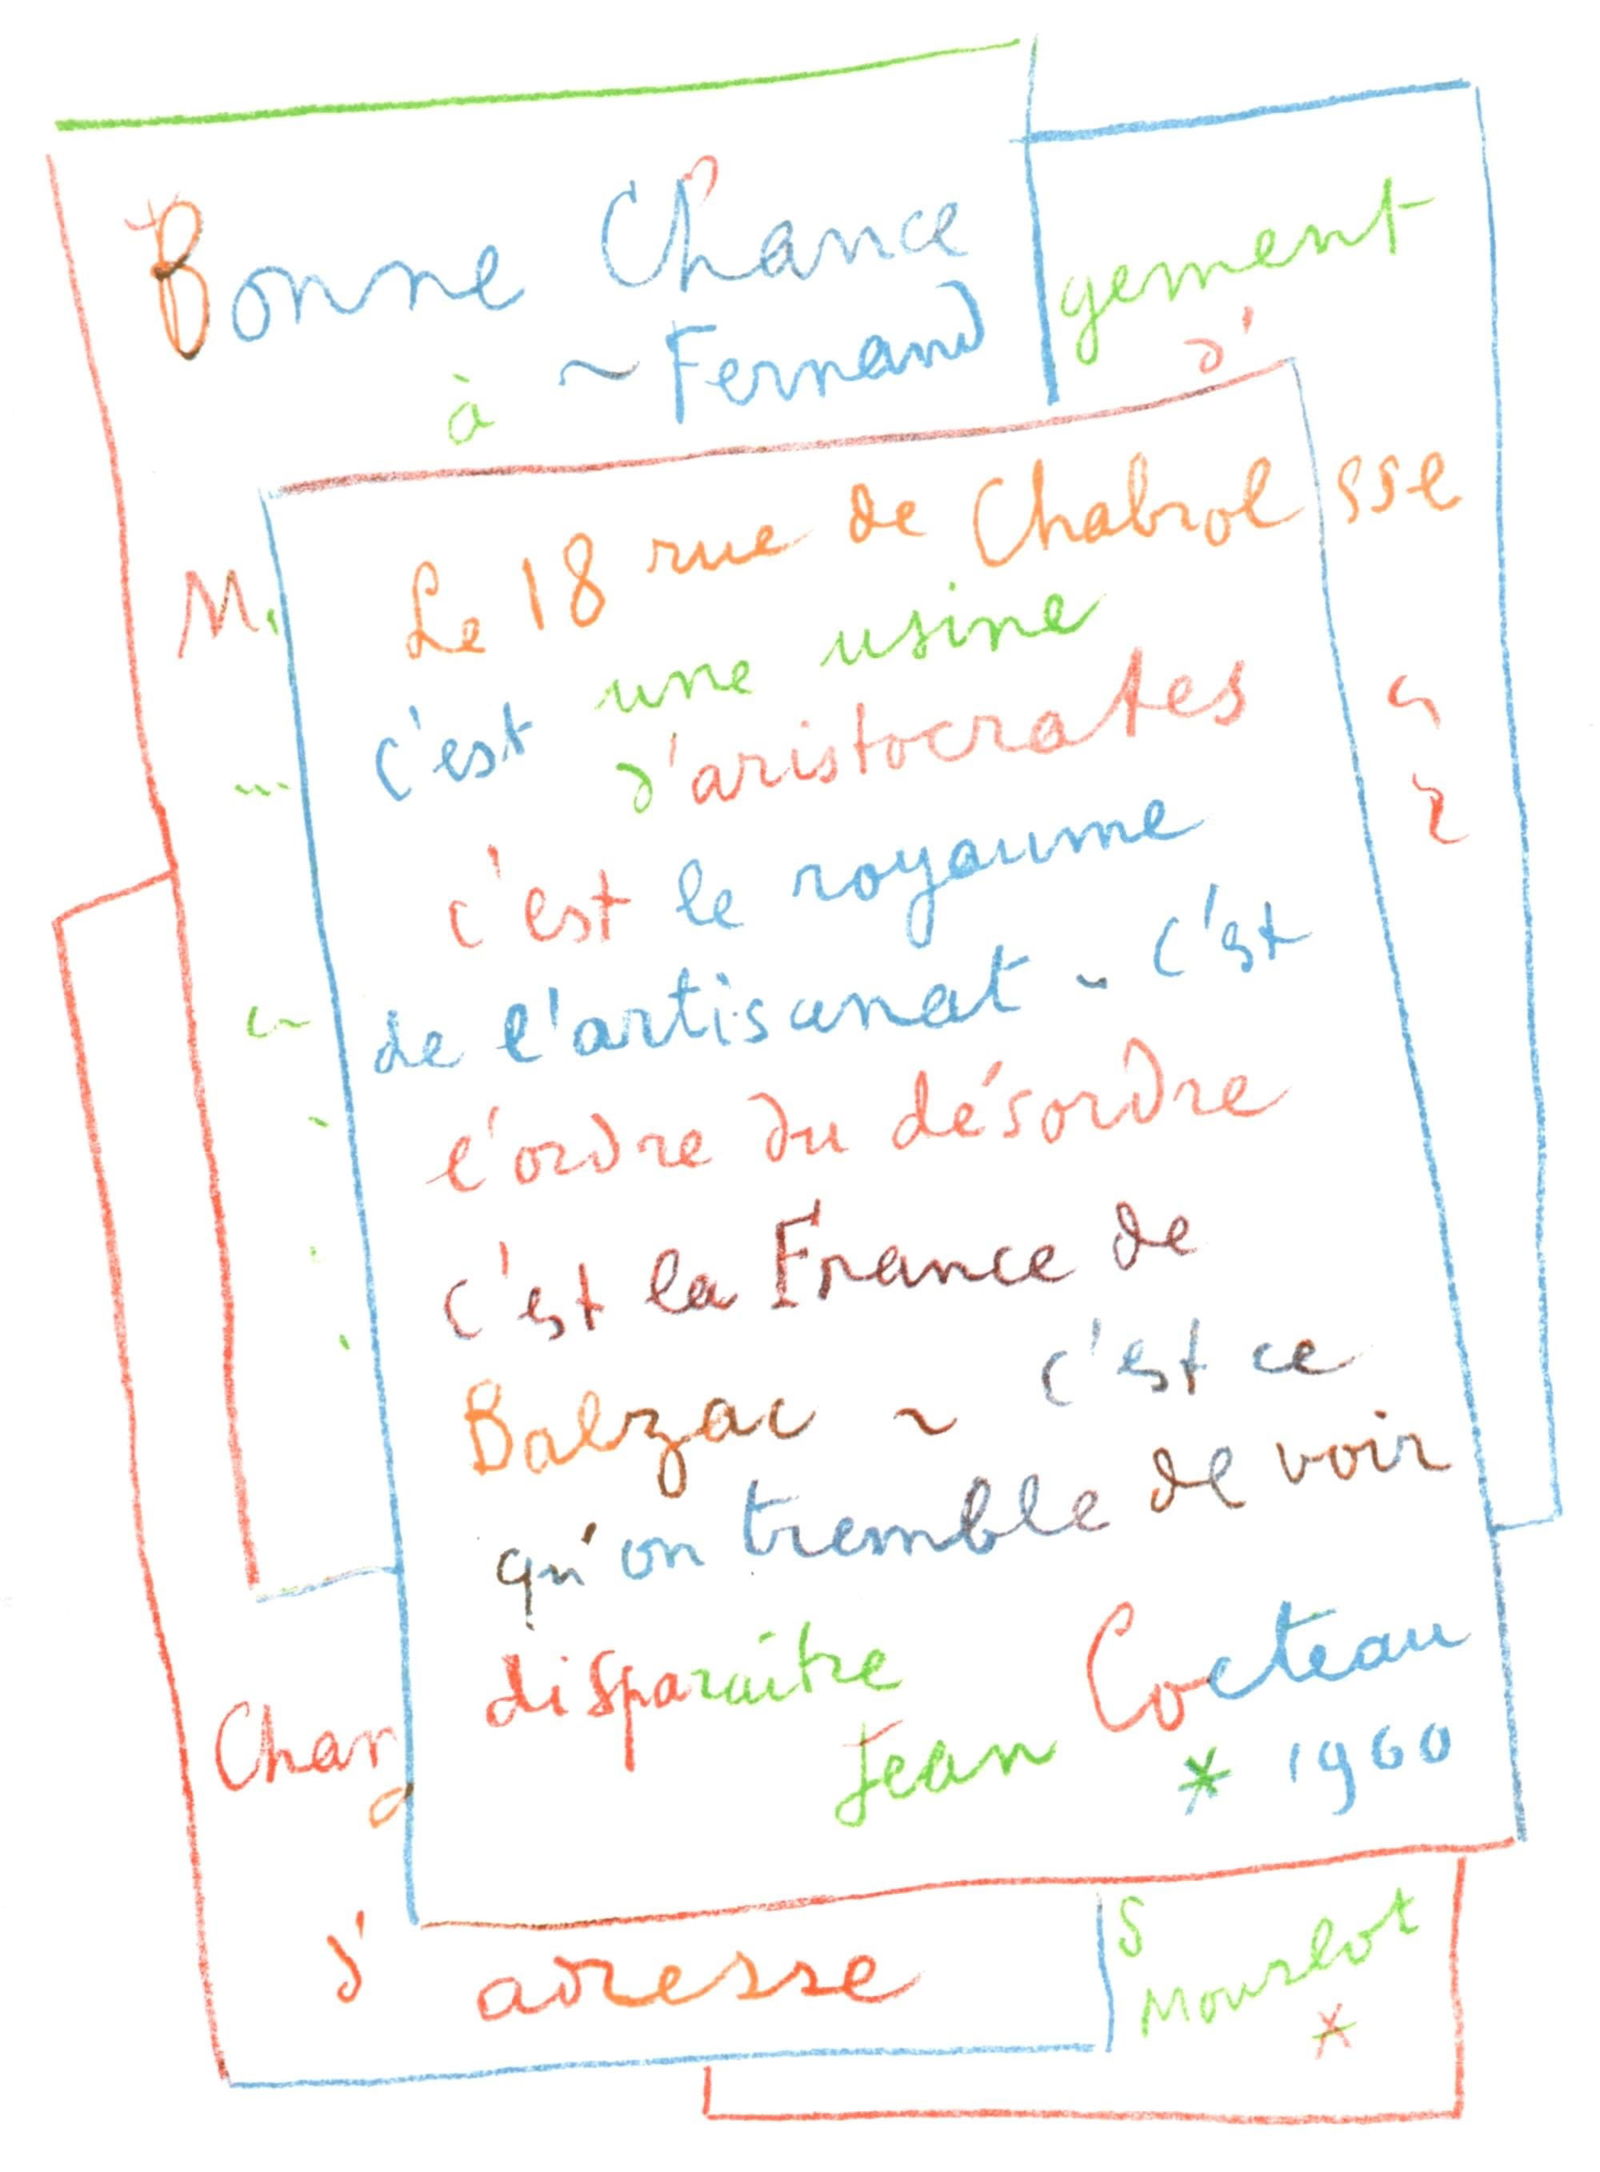 Bonne Chance
à ~ Fernand
gement
d'
M.
Le 18 rue de Chabrol
sse
c'est une usine
d'aristocrates
c'est le royaume
de l'artisanat ~ c'est
l'ordre du désordre
c'est la France de
Balzac ~ c'est ce
qu'on tremble de voir
disparaître
Jean Cocteau
* 1960
Chan
d'adresse
S
Mourlot
*